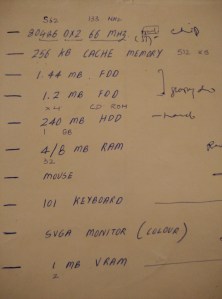 133 MHZ
— 80486 DX2 66 MHZ chip
— 256 KB CACHE MEMORY 512 KB
— 1.44 MB FDD
— 1.2 MB FDD
CD ROM
— 240 MB HDD
1 GB
— 4/8 MB RAM
32
— MOUSE
— 101 KEYBOARD
— SVGA MONITOR (COLOUR)
— 1 MB VRAM
2